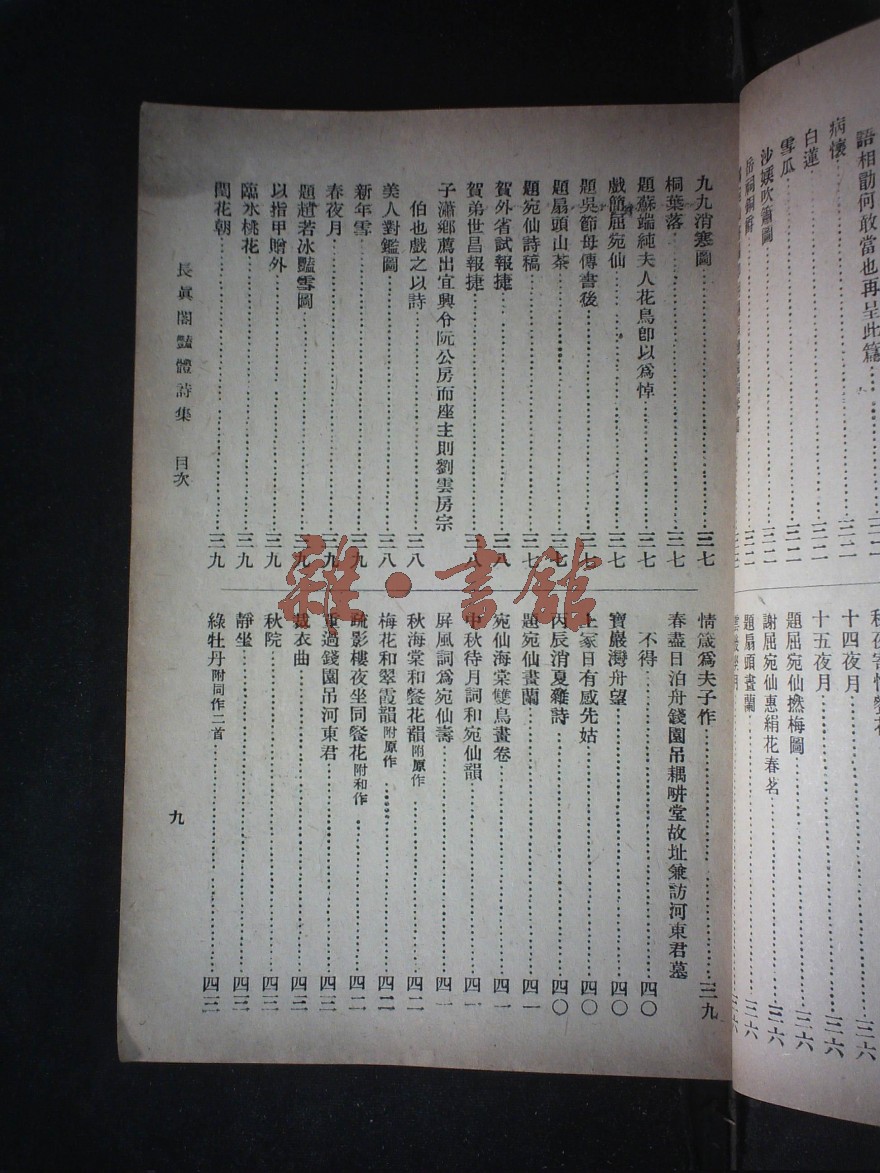 語相勖何敢當也再呈此篇……三二
病懷……三二
白蓮……三二
雪瓜……三二
沙嫫吹簫圖……三二
十四夜月……三六
十五夜月……三六
題屈宛仙撚梅圖……三六
謝屈宛仙惠絹花春茗……三六
題扇頭畫蘭……三六
九九消寒圖……三七
桐葉落……三七
題蘇端純夫人花鳥卽以爲悼……三七
戲簡屈宛仙……三七
題吳節母傳書後……三七
題扇頭山茶……三七
題宛仙詩稿……三七
賀外省試報捷……三八
賀弟世昌報捷……三八
子瀟鄉薦出宜興令阮公房而座主則劉雲房宗
伯也戲之以詩……三八
美人對鑑圖……三八
新年雪……三九
春夜月……三九
題趙若冰豔雪圖……三九
以指甲贈外……三九
臨水桃花……三九
閏花朝……三九
情箴爲夫子作……三九
春盡日泊舟錢園吊耦畊堂故址兼訪河東君墓
不得……四〇
寶巖灣舟望……四〇
上冢日有感先姑……四〇
丙辰消夏雜詩……四〇
題宛仙畫蘭……四一
宛仙海棠雙鳥畫卷……四一
中秋待月詞和宛仙韻……四一
屏風詞爲宛仙壽……四一
秋海棠和餐花韻附原作……四二
梅花和翠霞韻附原作……四二
疏影樓夜坐同餐花附和作……四二
重過錢園吊河東君……四三
裁衣曲……四三
秋院……四三
靜坐……四三
綠牡丹附同作二首……四三
長眞閣豔體詩集 目次
九
雜·書館